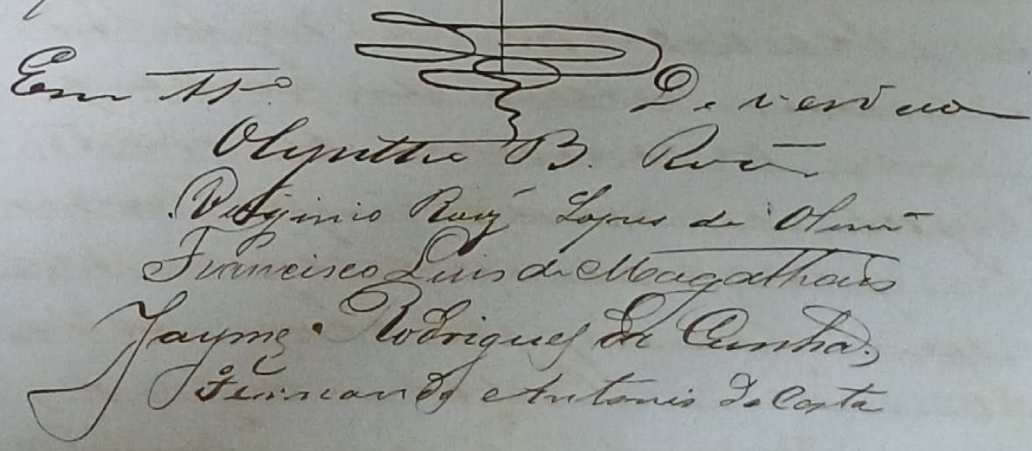 Em tt.º De verdade
Olyntho B. Rocha
Virginio Ruiz Lopes de Olivrª
Francisco Luis de Magalhães
Jayme Rodrigues da Cunha,
Fernando Antonio da Costa